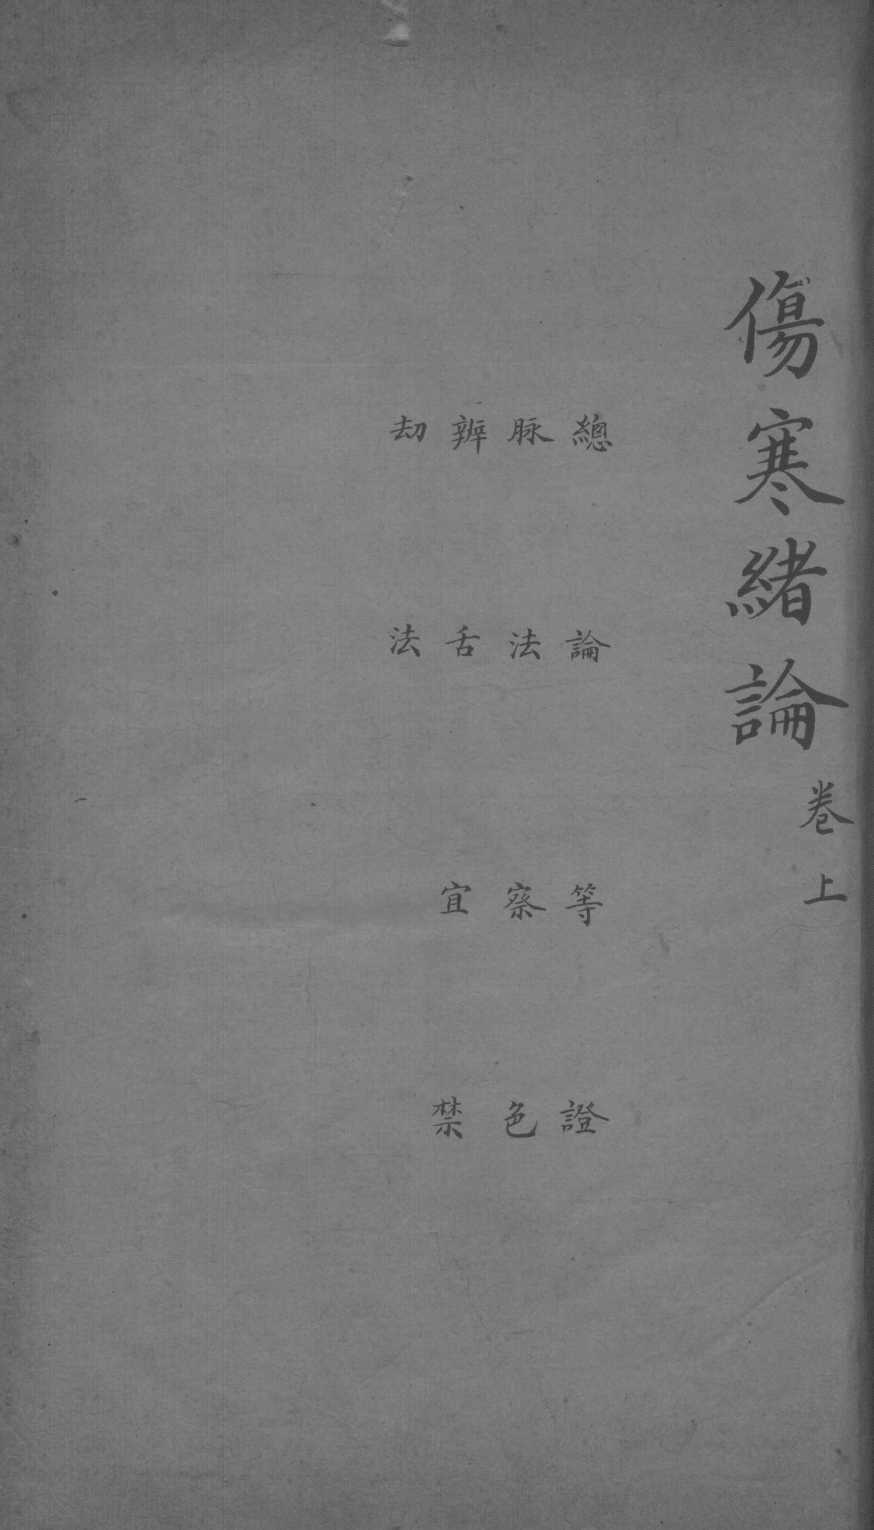 傷寒緒論 卷上
總論 等證
脉法 察色
辨舌 宜禁
劫法